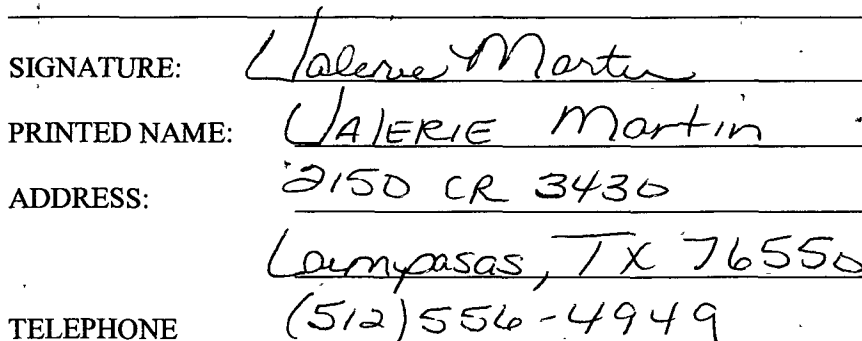 SIGNATURE: Valerie Martin
PRINTED NAME: VALERIE Martin
ADDRESS: 2150 CR 3430
Lampasas, TX 76550
TELEPHONE (512) 556-4949